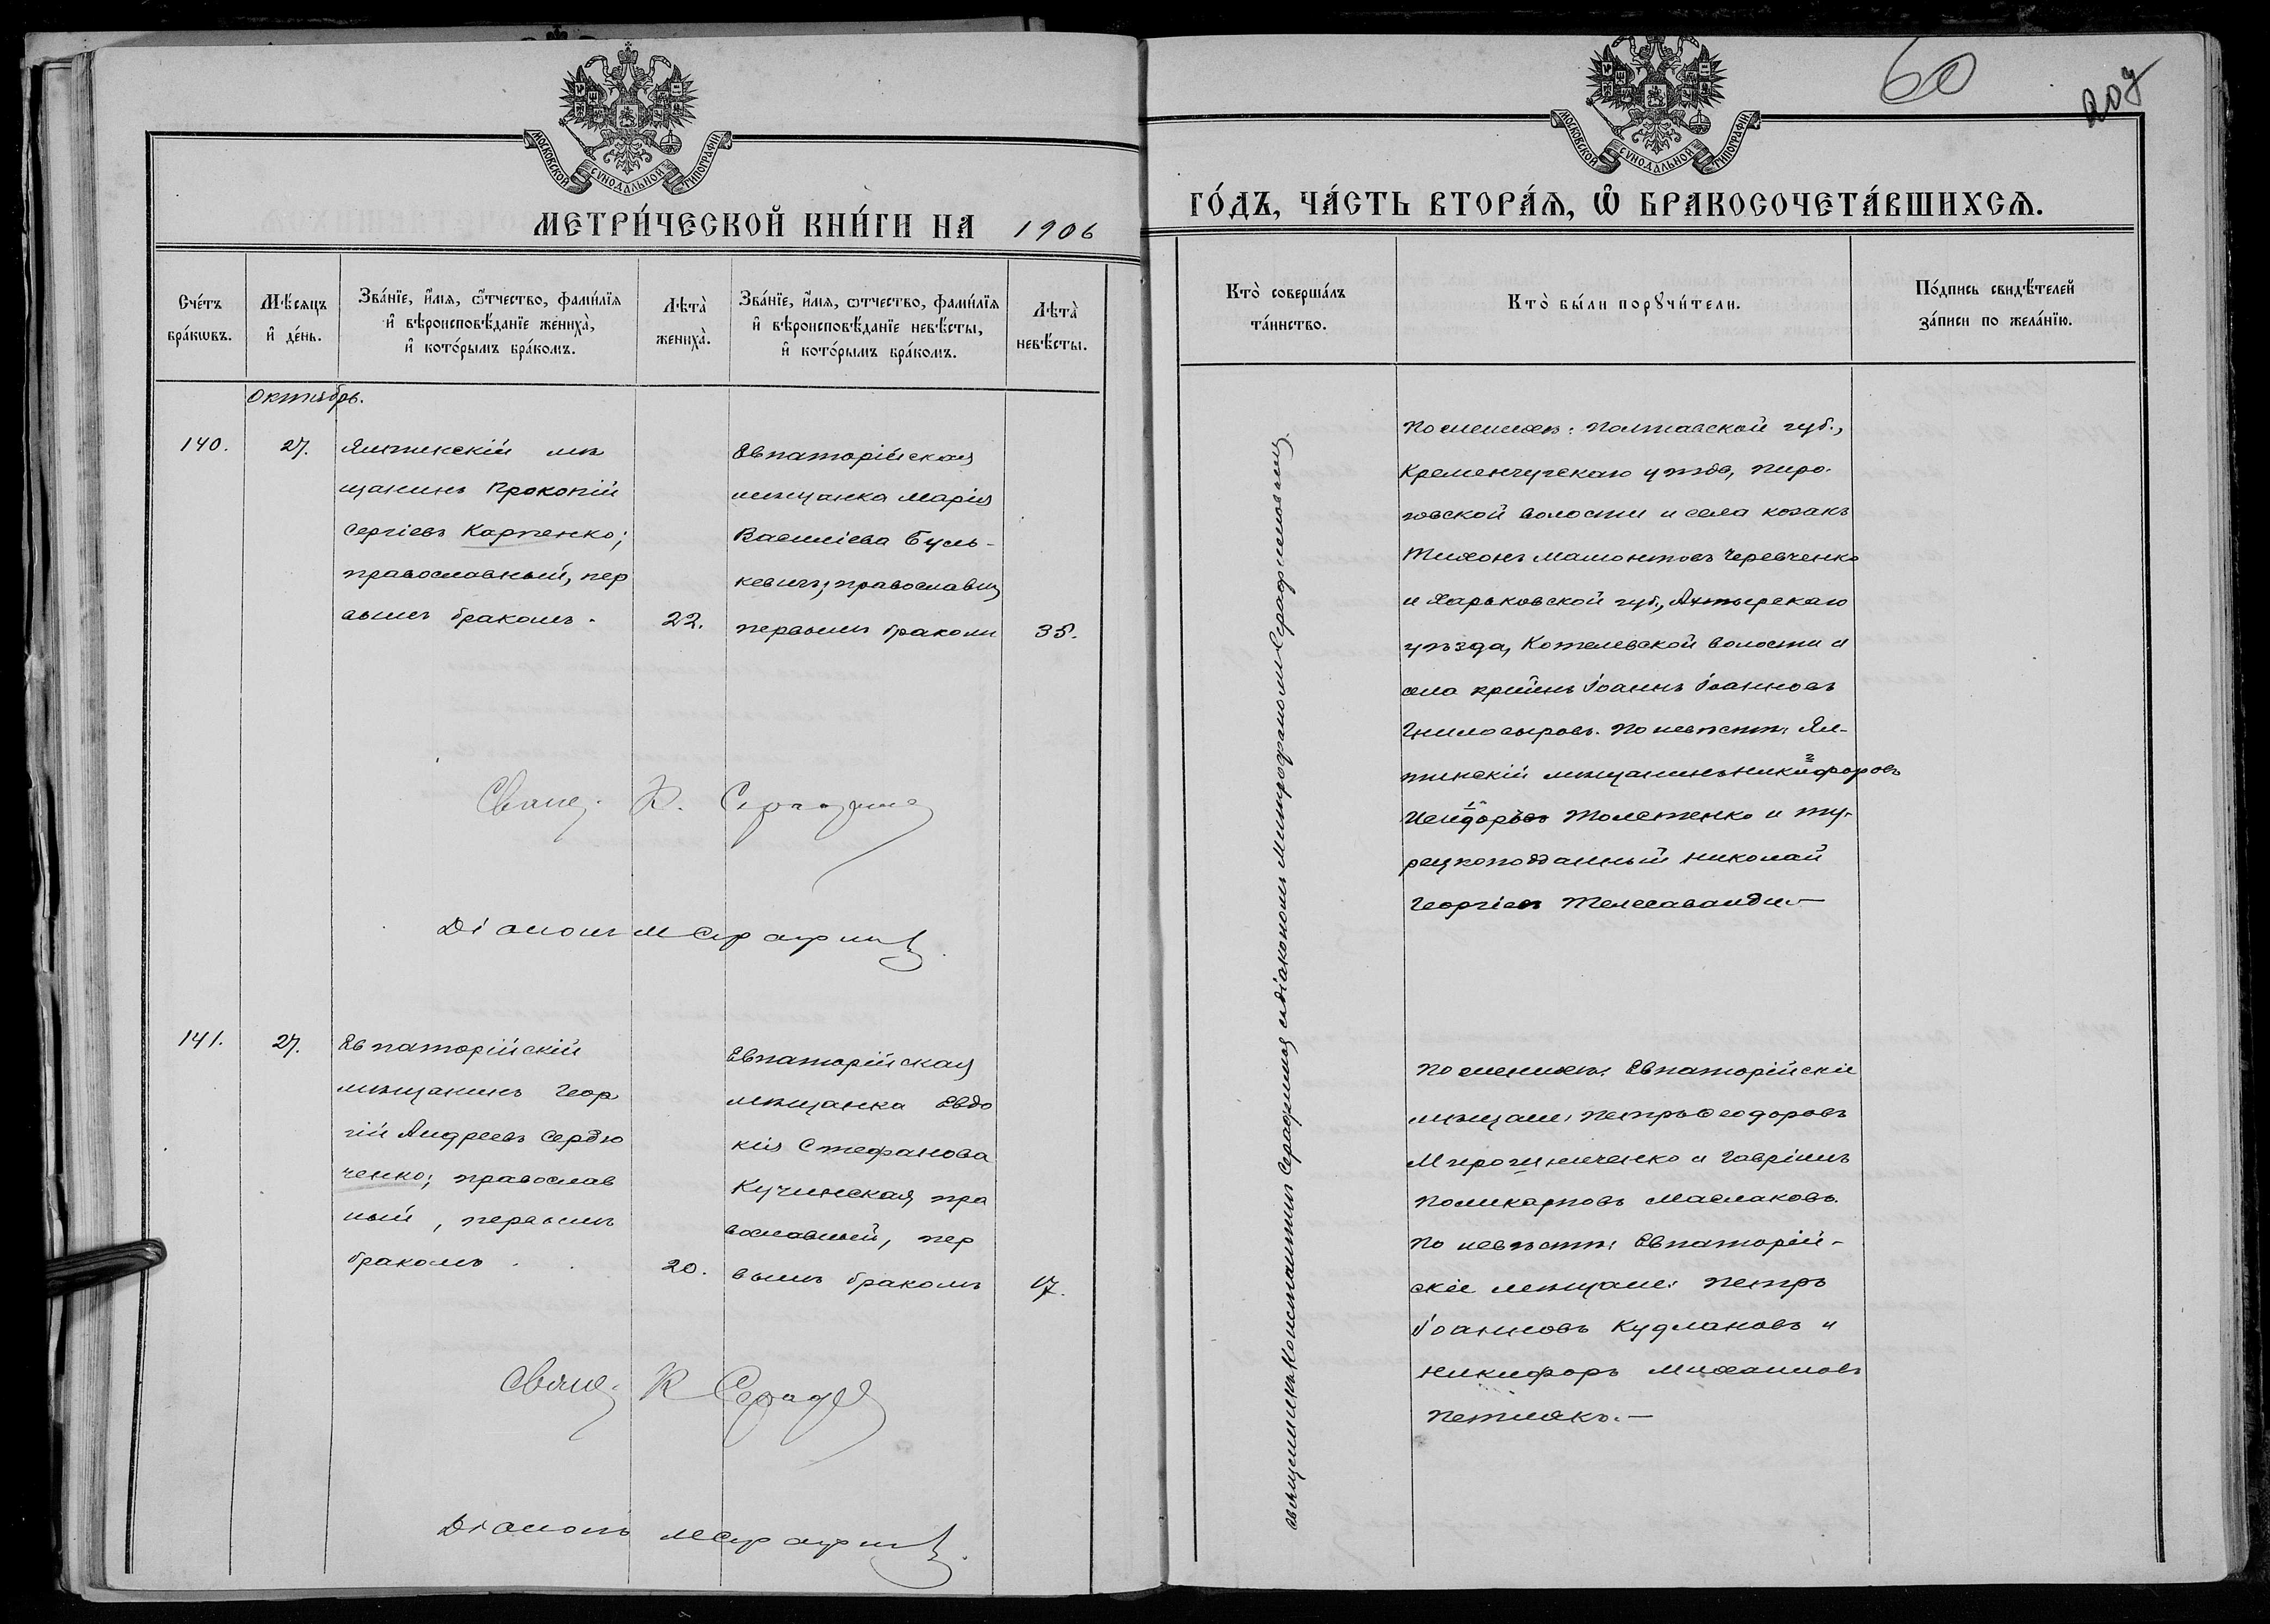 МОСКОВСКОЙ СѴНОДАЛЬНОЙ ТИПОГРАФІИ
МЕТРИ́ЧЕСКОЙ КНИ́ГИ НА 1906
Сче́тъ бра́кѡвъ.
Мѣ́сяцъ и҆ де́нь.
Зва́нїе, и҆́мя, ѻ҆́тчество, фами́лїя
и҆ вѣроисповѣ́данїе жениха̀,
и҆ кото́рымъ бра́комъ.
Лѣта̀ жениха̀.
Зва́нїе, и҆́мя, ѻтчество, фами́лїя
и҆ вѣроисповѣ́данїе невѣ́сты,
и҆ кото́рымъ бра́комъ.
Лѣта̀ невѣ́сты.
Октябрь.
140.
27.
Ялтинскій мѣ
щанинъ Прокопій
Сергіевъ Карпенко;
православный, пер
вымъ бракомъ.
22.
Евпаторійская
мѣщанка Марія
Василіева Буль-
кевичъ; православн
первымъ бракомъ
35.
Свящ. К. Серафимов
Діаконъ М Серафимов
141.
27.
Евпаторійскій
мѣщанинъ Геор
гій Андреевъ Сердю
ченко; православ
ный, первымъ
бракомъ
20.
Евпаторійская
мѣщанка Евдо
кія Стефанова
Кучинская, пра
вославный, пер
вымъ бракомъ
17.
Свящ. К Сераф
Діаконъ М Серафимов
60
207
МОСКОВСКОЙ СѴНОДАЛЬНОЙ ТИПОГРАФІИ
ГО́ДЪ, ЧА́СТЬ ВТОРА́Я, Ѽ БРАКОСОЧЕТА́ВШИХСЯ.
Кто̀ соверша́лъ
та́инство.
Кто̀ бы́ли порꙋчи́тели.
По́дпись свидѣ́телей
за́писи по жела́нїю.
Священникъ Константинъ Серафимов съ діакономъ Митрофаномъ Серафимовымъ
По женихѣ: Полтавской губ.,
Кременчугскаго уѣзда, Пиро-
говской волости и села козакъ
Тихонъ Мамонтовъ Черевченко
и Харьковской губ., Ахтырскаго
уѣзда, Котелевской волости и
села кр-инъ Іоаннъ Іоанновъ
Гнилосыровъ. По невѣстѣ: Ял-
тинскій мѣщанинъ Никифоровъ
Исидоръ Толстенко и ту-
рецкоподданный Николай
Георгіевъ
По женихѣ: Евпаторійскіе
мѣщане: Петръ Ѳеодоровъ
Мирошниченко и Гавріилъ
Поликарповъ Маслаковъ.
По невѣстѣ: Евпаторій-
скіе мѣщане: Петръ
Іоанновъ Кудлановъ и
Никифоръ Михаиловъ
Петлякъ.—